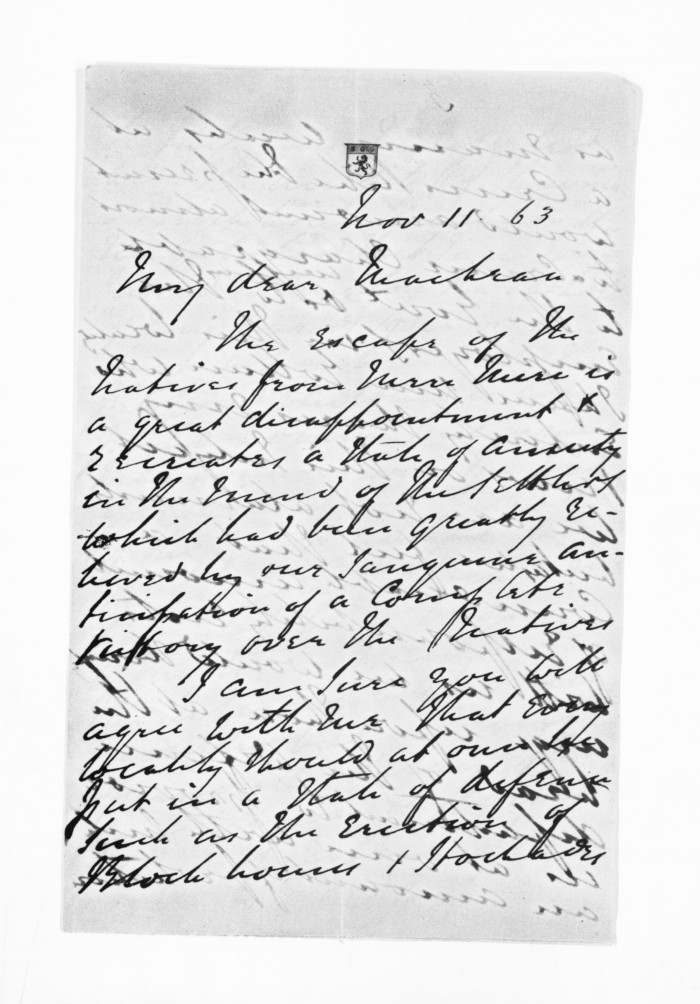 Nov 11 63
My dear Maclean
The Escape of the
Natives from Mere Mere is
a great disappointment &
recreates a State of anxiety
in the mind of the Settlers
which had been greatly re-
lieved by our Sanguine an-
ticipation of a Complete
victory over the Natives
I am Sure you will
agree with me that Every
locality should at once be
put in a State of defence
Such as the Erection of
Block houses & Stockades